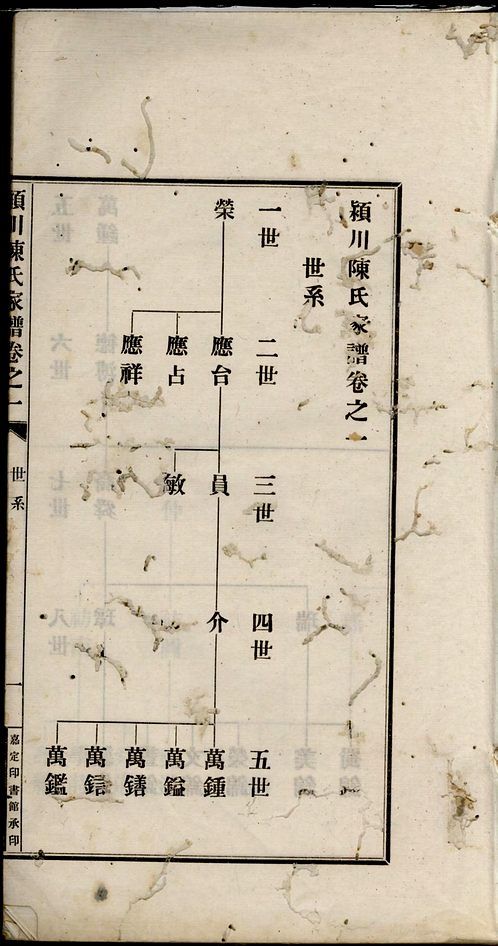 潁川陳氏家譜卷之一
世系
一世
榮
二世
應台
應占
應祥
三世
員
敏
四世
介
五世
萬鍾
萬鎰
萬鐥
萬鑑
潁川陳氏家譜卷之一
世系
一
嘉定印書館承印